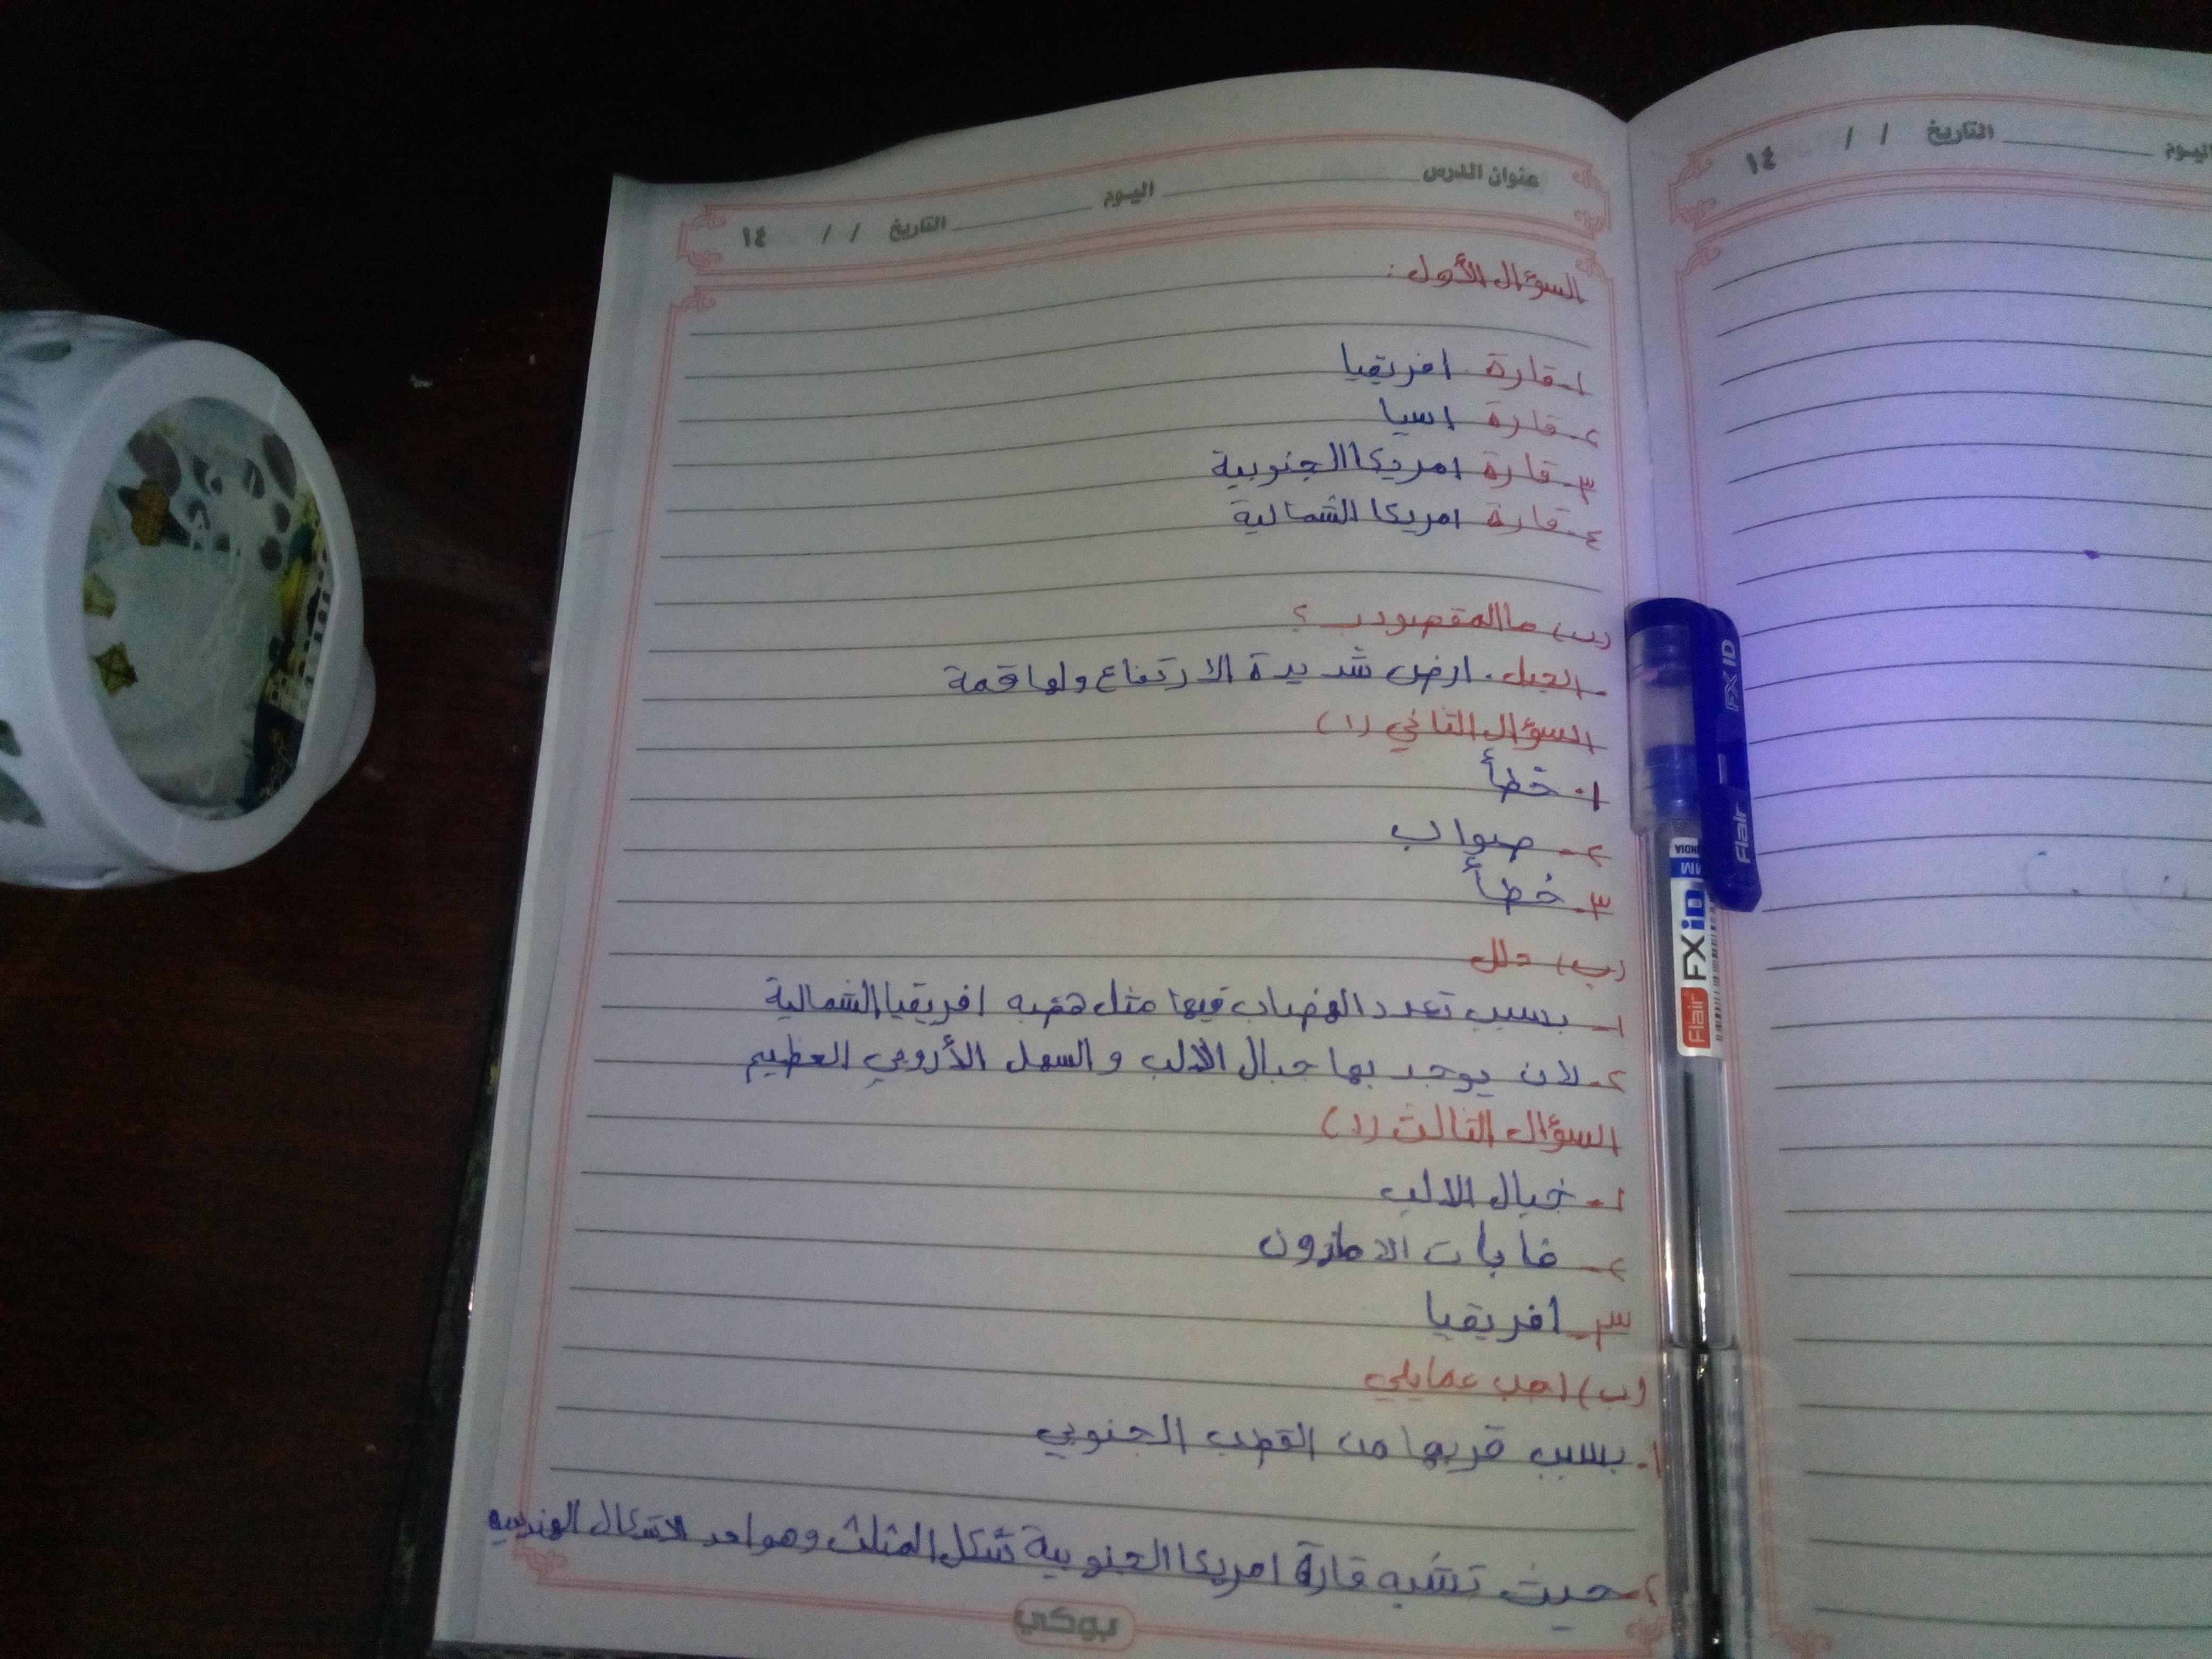 عنوان الدرس اليوم التاريخ / / ١٤
السؤال الأول :
١- قارة افريقيا
٢- قارة اسيا
٣- قارة امريكا الجنوبية
٤- قارة امريكا الشمالية
(ب) ما المقصود ب ؟
- الجبل . ارض شديدة الارتفاع ولها قمة
السؤال الثاني (١)
١- خطأ
٢- صواب
٣- خطأ
(ب) دلل
١- بسبب تعدد الهضاب فيها مثل هضبه افريقيا الشمالية
٢- لان يوجد بها جبال الالب و السهل الأروبي العظيم
السؤال الثالث (١)
١- جبال الالب
٢- غابات الامازون
٣- افريقيا
(ب) اجب عمايلي
١- بسبب قربها من القطب الجنوبي
٢- حيث تشبه قارة امريكا الجنوبية شكل المثلث وهو احد الاشكال الهندسيه
بوكي
اليوم التاريخ / / ١٤
Flair FX ID
Flair FX iD
INDIA
MM